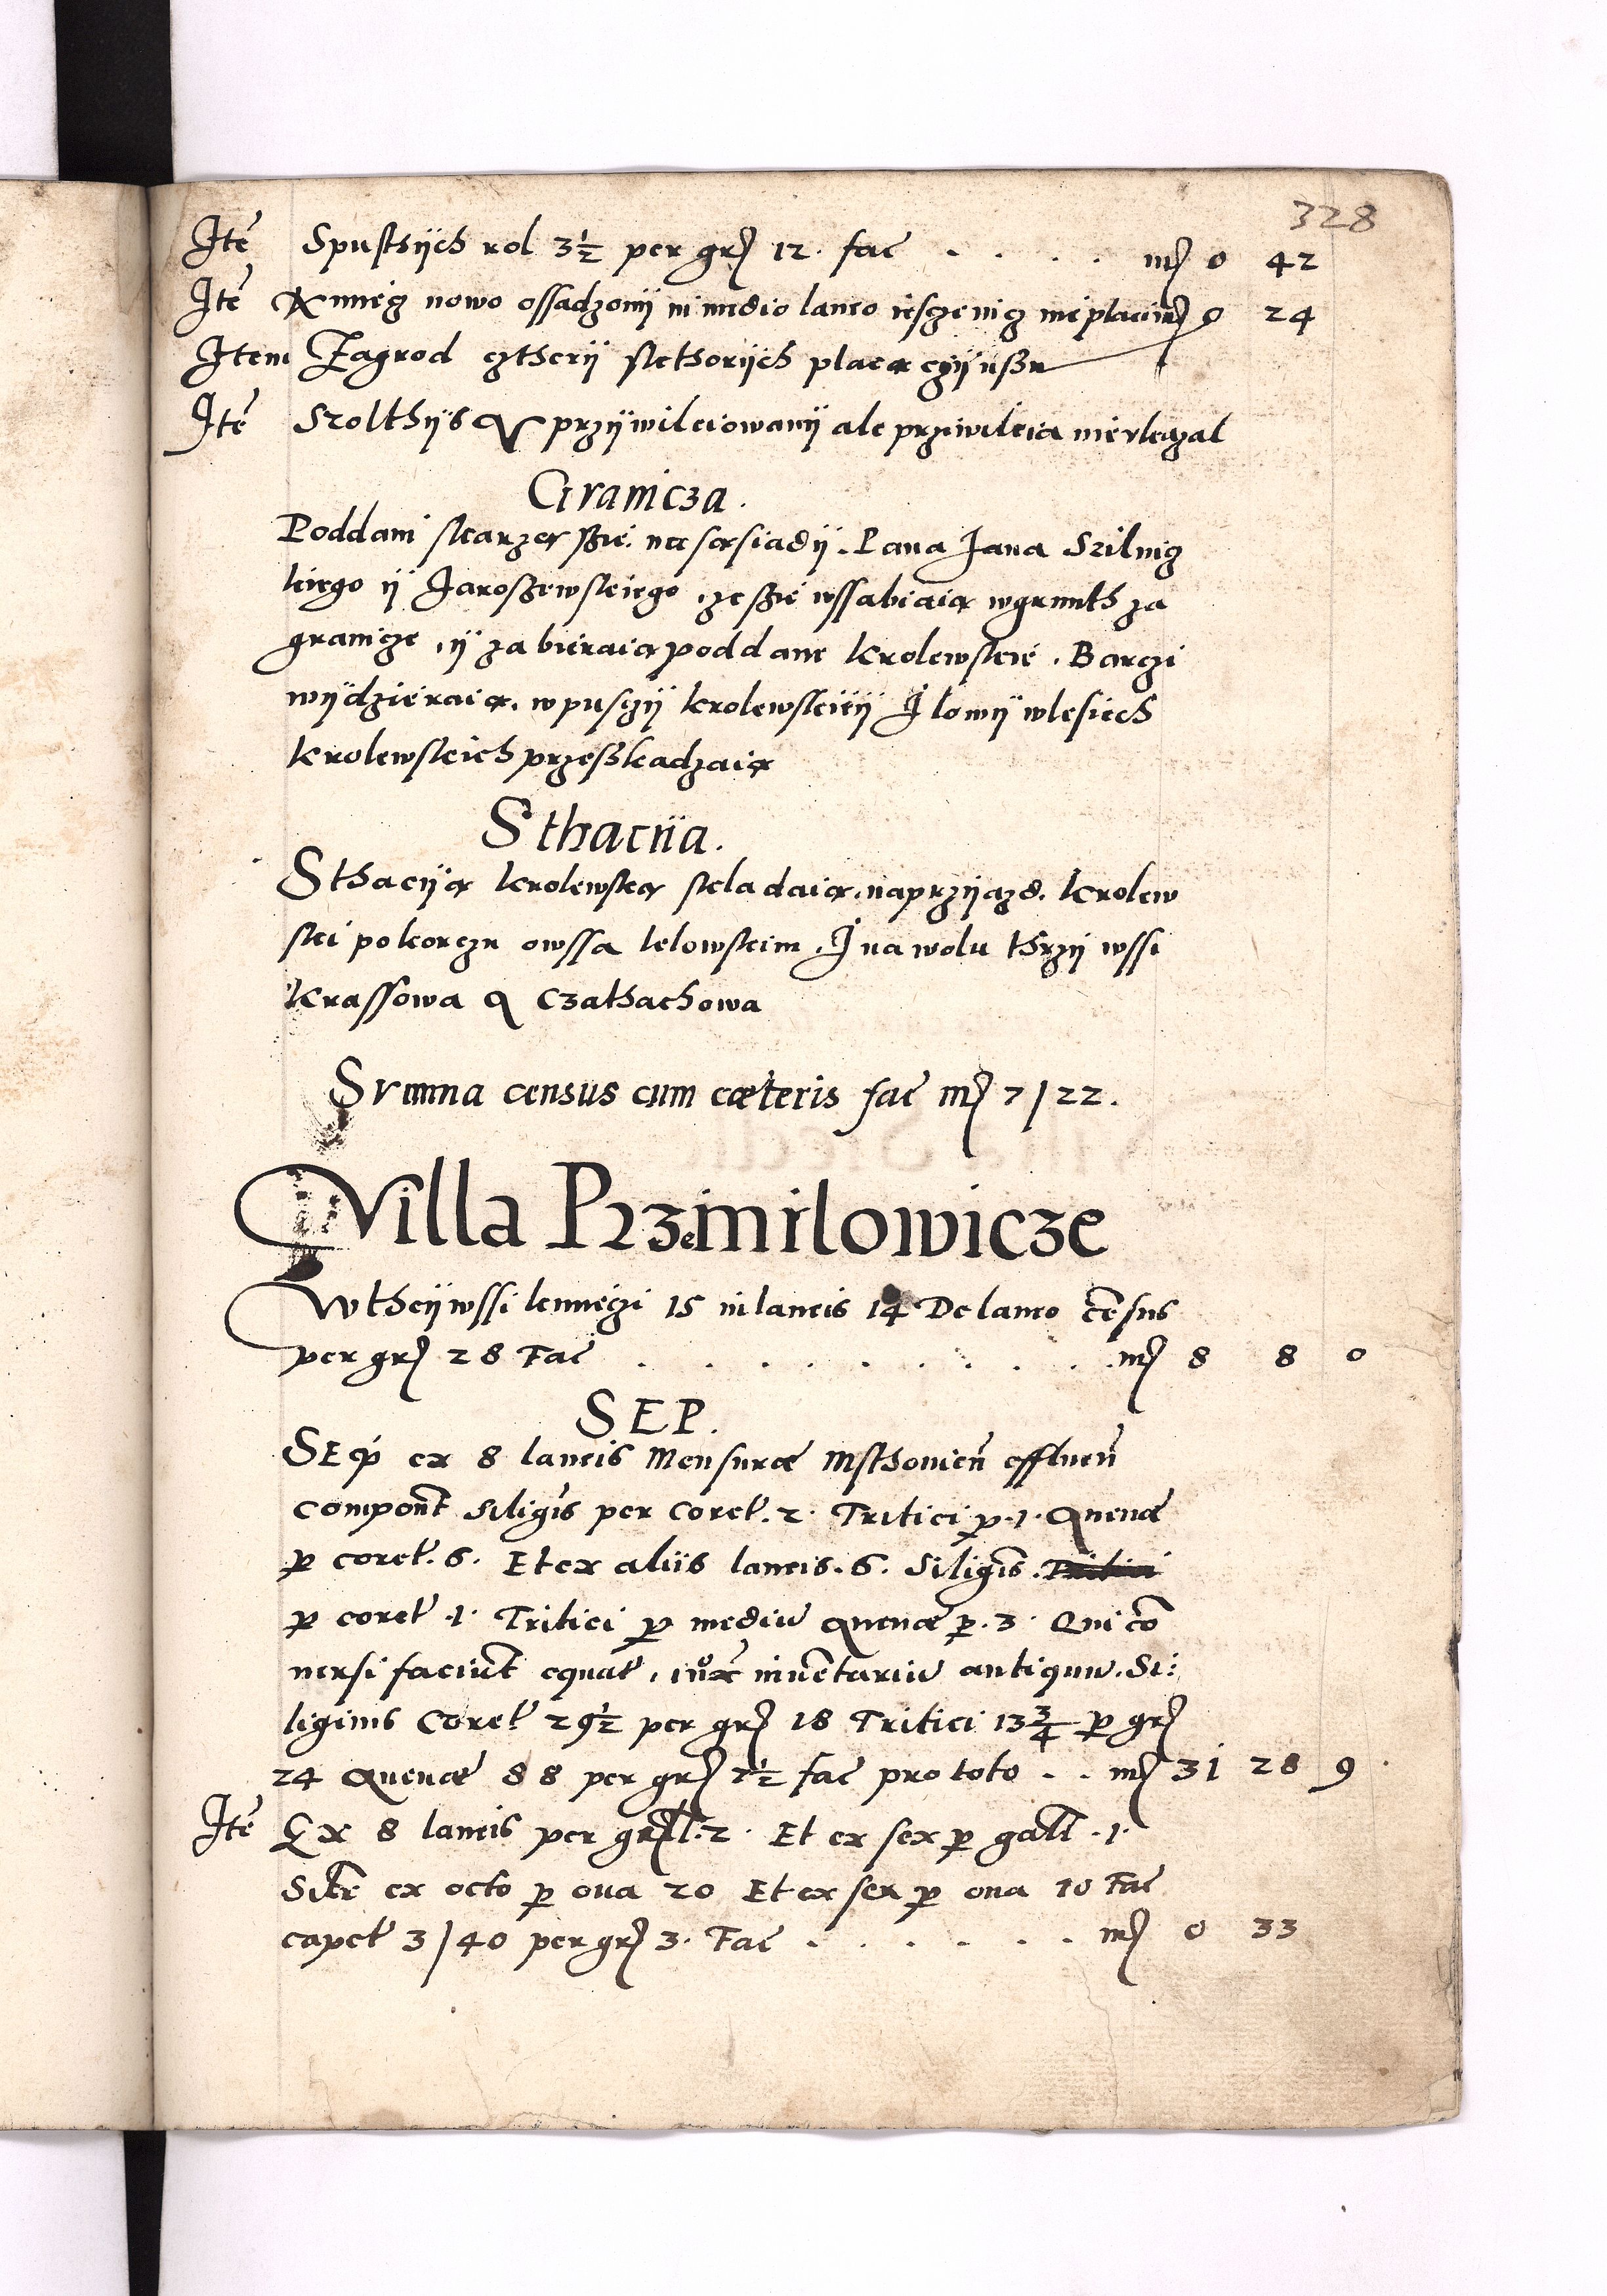 328
Itē Spusthÿch rol 3½ per gr 12. fac . . . . mr 0 42
Itē Kmiecz nowo ossadzonÿ in medio laneo ieszcze nicz nie placi mr 0 24
Item Zagrod cztherÿ s kthorÿch placą czÿnszu
Itē Szolthÿs przÿwileiowanÿ ale prziwileia nie vkazal
Granicza.
Poddani skarzą sie na sąsiadÿ. Pana Jana Szilnicz
kiego ÿ Jaroszewskiego, ze sie wssabiaią w grunth za
granicze, ÿ zabieraią poddane krolewskie. Barczi
wÿdzieraią. w puszczÿ krolewskieÿ I lowÿ w lesiech
krolewskich przeszkadzaią
Sthacÿa.
Sthacÿą krolewską skladaią. na przÿazd. krolew
ski po korczu owssa lelowskim. I na wolu thrzÿ wssi
Krassowa q Czathachowa
Svmma census cum cæteris fac mr 7/22.
Villa Przemilowicze
W theÿ wssi kmieczi 15 in laneis 14 De laneo cēsus
per gr 28 Fac . . . . . . . . . mr 8 8 0
SEP.
SEp ex 8 laneis Mensuræ Msthouień efflueń
Componūt Siligīs per Coret. 2. Tritici p. 1. Auenæ
p coret. 6. Et ex aliis laneis. 6. Siligīs. Tritici
p coret. 1. Tritici p mediū Auenæ p. 3. Qui cō
uersi faciūt equat, iux inuētariū antiquū. Si:
liginis Coret 29½ per gr 18 Tritici 13¾ p gr
24 Auenæ 88 per gr 7½ fac pro toto . . mr 31 28 9
Itē Ex 8 laneis per gall. 2. Et ex sex p gall. 1.
Silr ex octo p oua 20 Et ex sex p oua 10 Fac
capet 3/40 per gr 3. Fac . . . . . . mr 0 33